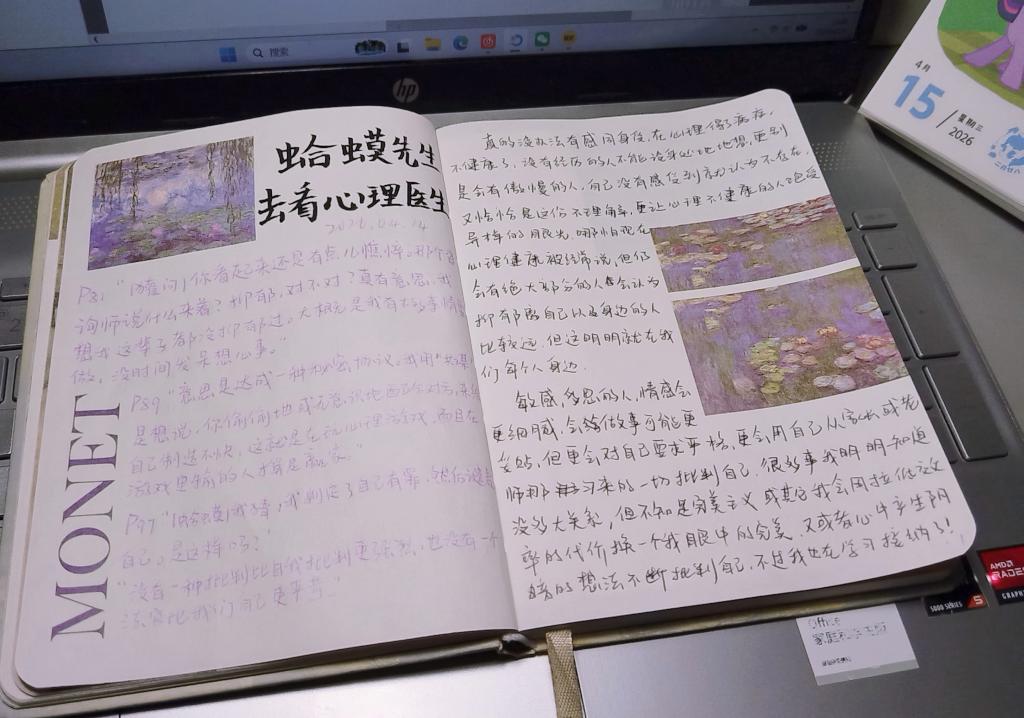 搜索
hp
4月
15
星期三
2026
蛤蟆先生
去看心理医生
2026.04.14
P81 "[苍鹭问]你看起来还是有点儿憔悴。那个咨
询师说什么来着?抑郁,对不对?真有意思,我
想我这辈子都没抑郁过。大概是我有太多事情
做,没时间发呆想心事。"
P89 "意思是达成一种秘密协议。我用"共谋"
是想说,你偷偷地或无意识地跟自己对抗,来给
自己制造不快,这就是在玩心理游戏,而且在
游戏里输的人才算是赢家。"
P97 "[蛤蟆]我猜,我判定了自己有罪,然后谴责
自己。是这样吗?
"没有一种批判比自我批判更强烈,也没有一个
法官比我们自己更严苛"
MONET
真的没办法有感同身受,在心理得了病症,
不健康了,没有经历的人不能设身处地地想,更别
是会有傲慢的人,自己没有感受到就认为不存在,
又恰恰是这份不理解,更让心理不健康的人饱受
异样的眼光。哪怕现在
心理健康被经常说,但仍
会有绝大部分的人会认为
抑郁离自己以及身边的人
比较远,但这明明就在我
们每个人身边.
敏感,多思的人,情感会
更细腻,会做事可能更
妥帖,但更会对自己要求严格,更会用自己从家长或老
师那习来的一切批判自己,很多事我明明知道
没多大关系,但不知是完美主义或其它我会用拉低效
率的代价换一个我眼中的完美,又或者心中产生阴
暗的想法不断批判自己,不过我也在学习接纳了!
AMD
RADEON
GRAPHICS
5000 SERIES
5
Office